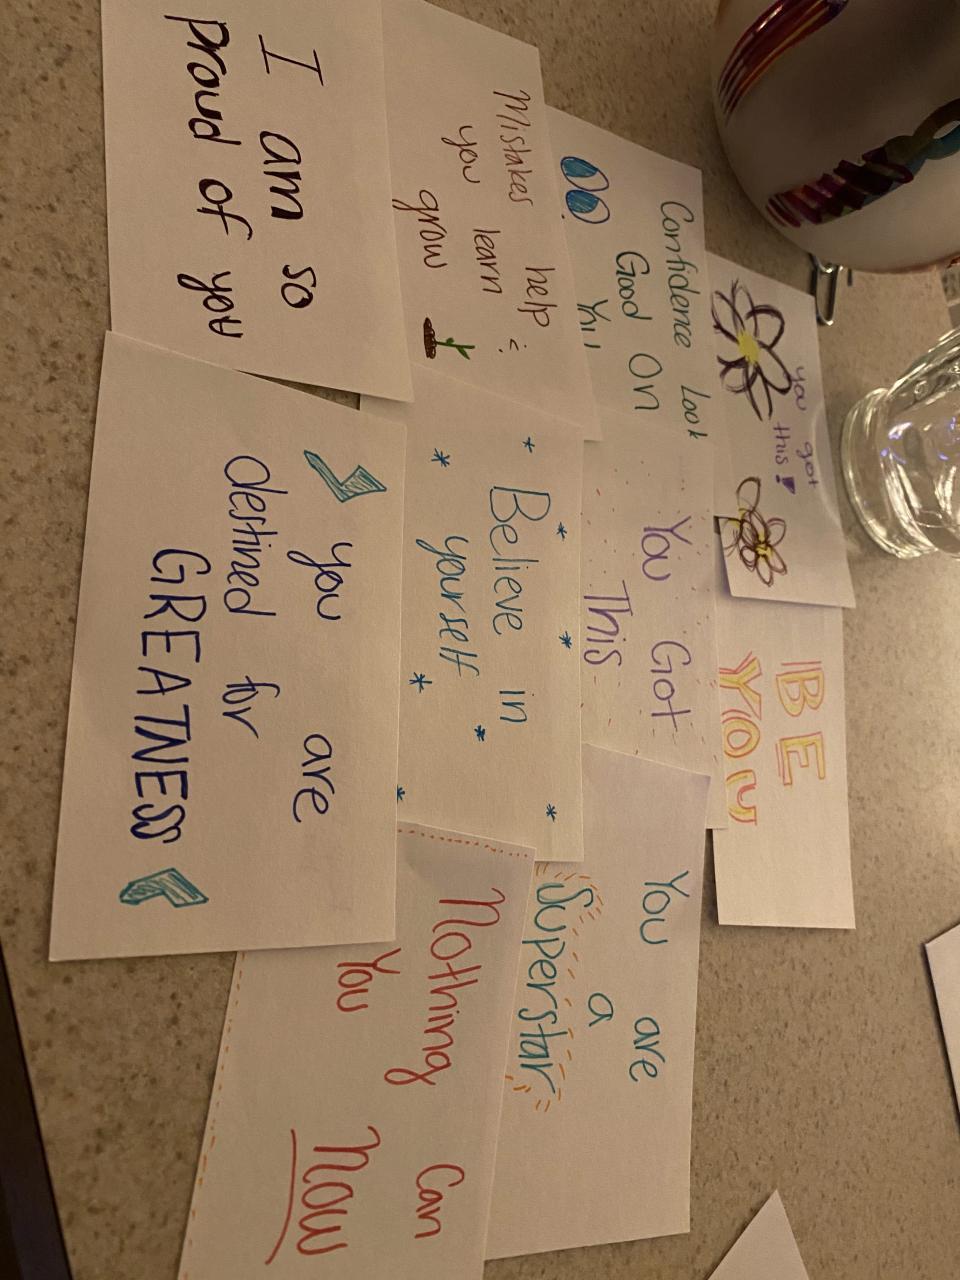 you got
this!
BE
YOU
Confidence Look
Good On
You Got
This
You are
a
Superstar
Mistakes help
you learn
grow
Believe in
yourself
Nothing Can
You Now
I am so
proud of you
you are
destined for
GREATNESS